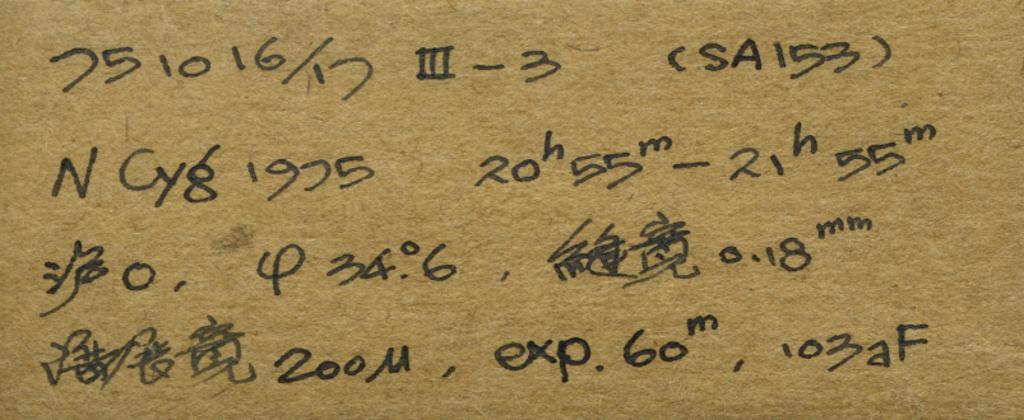 751016/17 III-3 (SA153)
N Cyg 1975 20ʰ55ᵐ-21ʰ55ᵐ
沪0, φ 34.°6, 縫寬 0.18ᵐᵐ
展寬 200μ, exp. 60ᵐ, 103aF